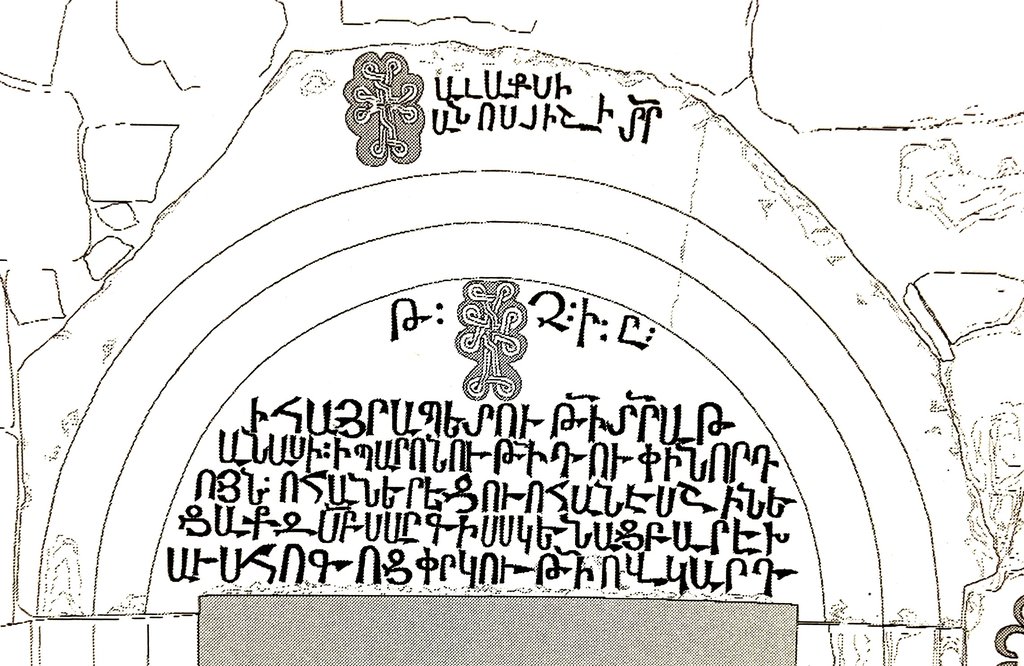 ԱԼԱՔՍԻ
ԱՆՈՍԱՅԻՇԼԻ ՏՐ
Թ: Չ:Ի:Ը:
ԻՀԱՅՐԱՊԵՏՈՒԹԻ ՏՐ ԱԹ
ԱՆԱՍԻ:Ի ՊԱՐՈՆՈՒԹԻ Դ ՈՒ ՓԻՆՈՐԴ
ՈՅՆ: ՈՀԱՆԵՐԷՑ ՈՒ ՈՀԱՆԷՍ ՇԻՆԵ
ՑԱՔ ԶՍԲ ՍԱՐԳԻՍՍ ԿԵՆԱՑ ԲԱՐԷԽ
ԱՒՍ ՀՈԳՈՑ ՓՐԿՈՒԹԻ ՈՎ ԿԱՐԴ